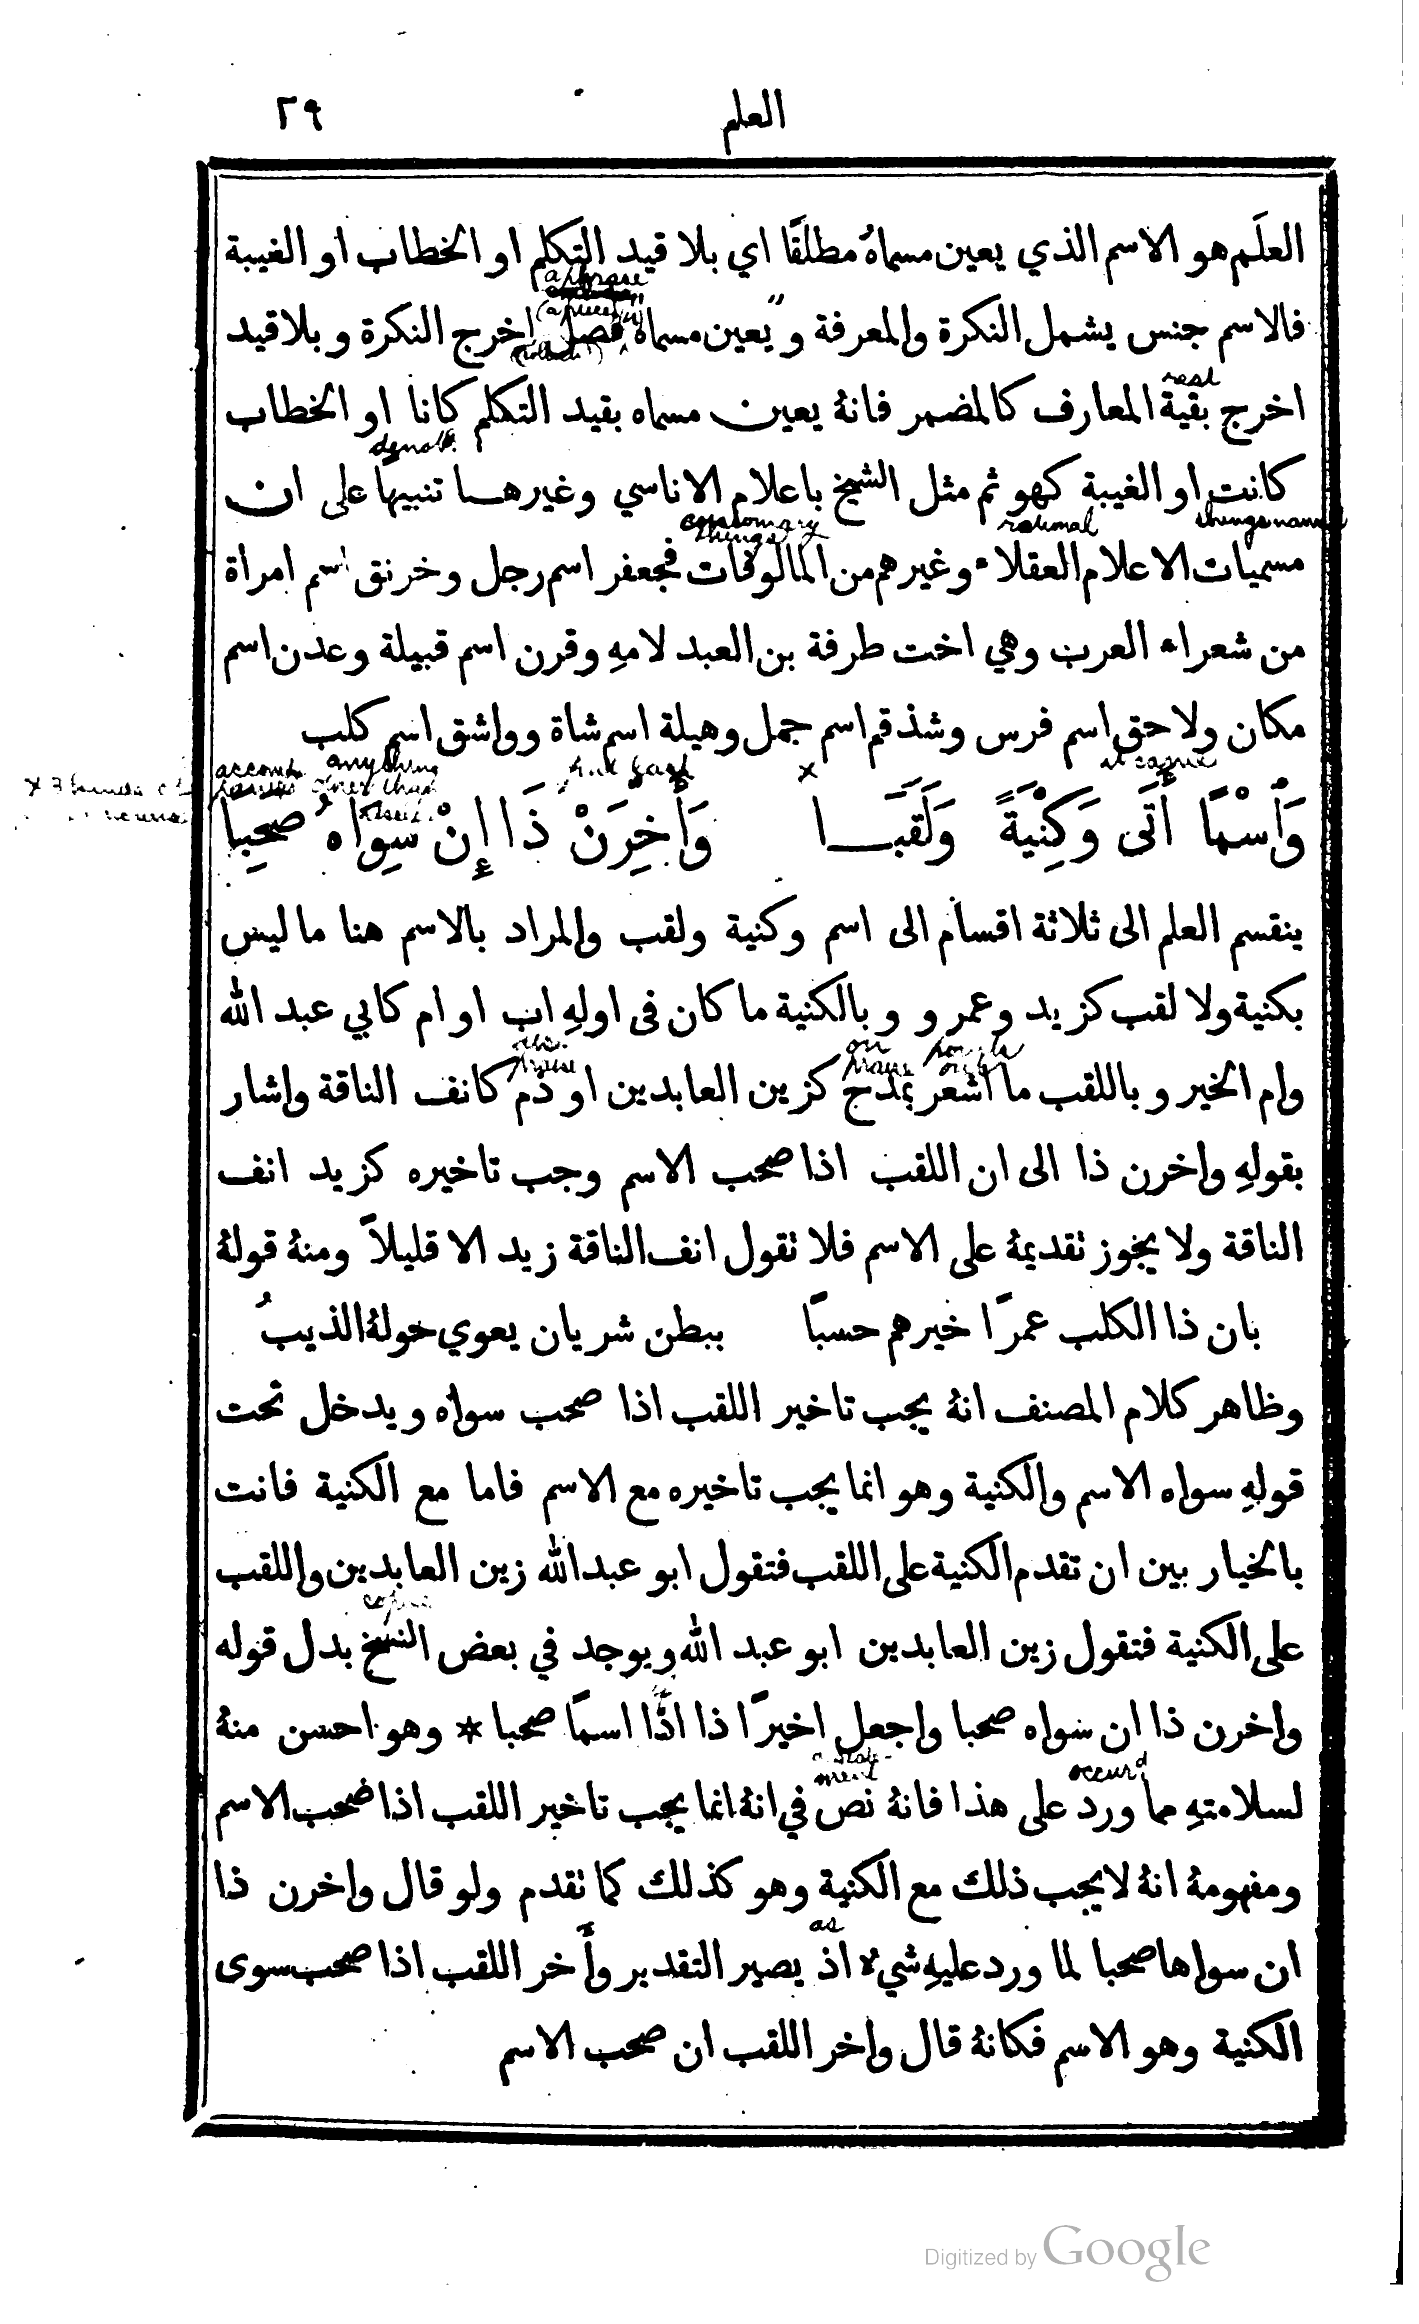 العلم ٢٩
العلَم هو الاسم الذي يعين مسماهُ مطلقًا اي بلا قيد التكلم او الخطاب او الغيبة
a phrase
فالاسم جنس يشمل النكرة والمعرفة و يعين مسماه فصل اخرج النكرة و بلا قيد
rest
اخرج بقية المعارف كالمضمر فانهُ يعين مسماه بقيد التكلم كانا او الخطاب
denote
كانت او الغيبة كهو ثم مثل الشيخ باعلام الاناسي وغيرها تنبيها على ان
things named rational customary things
مسميات الاعلام العقلاء وغيرهم من المالوفات فجعفر اسم رجل وخرنق اسم امراة
من شعراء العرب وهي اخت طرفة بن العبد لامهِ وقرن اسم قبيلة وعدن اسم
مكان ولاحق اسم فرس وشذقم اسم جمل وهيلة اسم شاة وواشق اسم كلب
it came x put last anything other than itself
x 3 kinds of nouns
وَأسْمًا أَتَى وَكِنْيَةً وَلَقَبَا وَأَخِرَنْ ذَا إِنْ سِوَاهُ صَحِبا
ينقسم العلم الى ثلاثة اقسام الى اسم وكنية ولقب والمراد بالاسم هنا ما ليس
بكنية ولا لقب كزيد وعمرو و بالكنية ما كان فى اولهِ اب او ام كابي عبد الله
on praise
وام الخير و باللقب ما اشعر بمدح كزين العابدين او ذم كانف الناقة واشار
بقولهِ واخرن ذا الى ان اللقب اذا صحب الاسم وجب تاخيره كزيد انف
الناقة ولا يجوز تقديمهُ على الاسم فلا تقول انف الناقة زيد الا قليلاً ومنهُ قولهُ
بان ذا الكلب عمرًا خيرهم حسبًا ببطن شريان يعوي حولهُ الذيبُ
وظاهر كلام المصنف انهُ يجب تاخير اللقب اذا صحب سواه ويدخل تحت
قولهِ سواه الاسم والكنية وهو انما يجب تاخيره مع الاسم فاما مع الكنية فانت
بالخيار بين ان تقدم الكنية على اللقب فتقول ابو عبد الله زين العابدين واللقب
على الكنية فتقول زين العابدين ابو عبد الله ويوجد في بعض النسخ بدل قوله
واخرن ذا ان سواه صحبا واجعل اخيرًا ذا اذا اسمًا صحبا * وهو احسن منهُ
occur'd a statement
لسلامتهِ مما ورد على هذا فانهُ نص في انهُ انما يجب تاخير اللقب اذا صحب الاسم
ومفهومهُ انهُ لا يجب ذلك مع الكنية وهو كذلك كما تقدم ولو قال واخرن ذا
as
ان سواها صحبا لما ورد عليهِ شيءٌ اذ يصير التقدير وأخر اللقب اذا صحب سوى
الكنية وهو الاسم فكانهُ قال واخر اللقب ان صحب الاسم
Digitized by Google